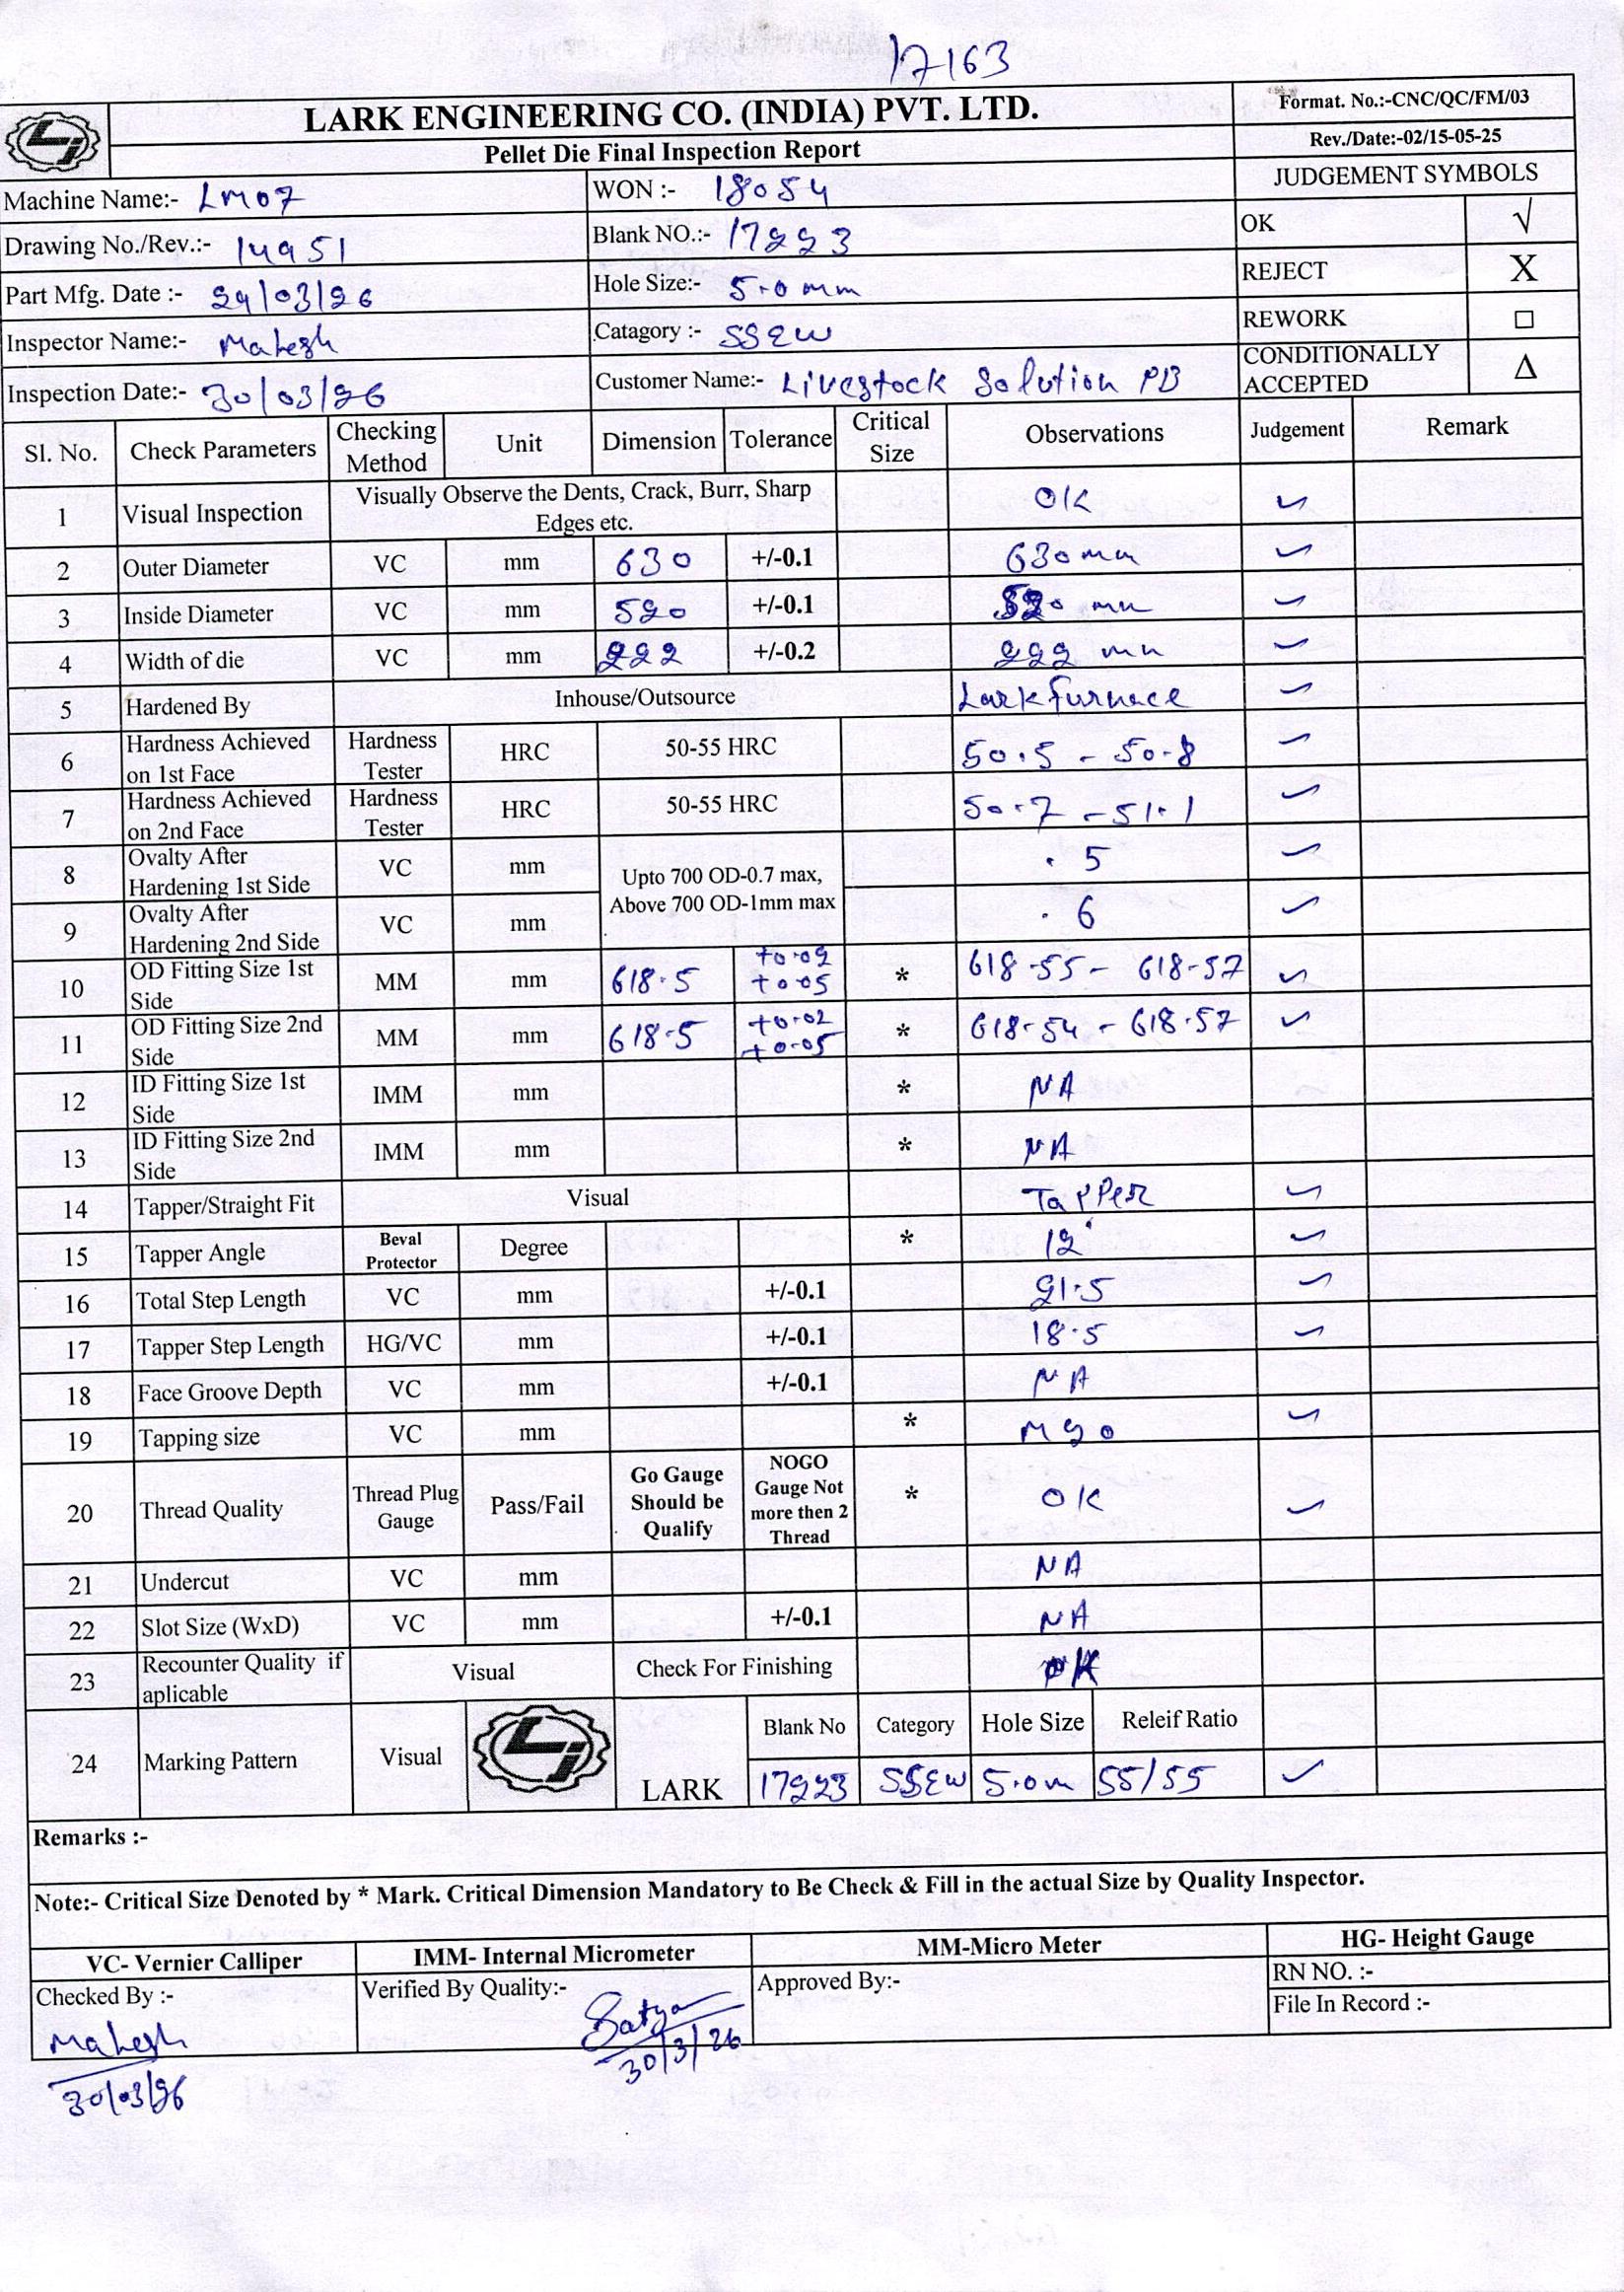 17163
LARK ENGINEERING CO. (INDIA) PVT. LTD.
Format. No.:-CNC/QC/FM/03
Pellet Die Final Inspection Report
Rev./Date:-02/15-05-25
Machine Name:- LM07
WON :- 18054
JUDGEMENT SYMBOLS
Drawing No./Rev.:- 14951
Blank NO.:- 17223
OK √
Part Mfg. Date :- 29/03/26
Hole Size:- 5.0 mm
REJECT X
Inspector Name:- Mahesh
Catagory :- SSEW
REWORK □
Inspection Date:- 30/03/26
Customer Name:- Livestock Solution PB
CONDITIONALLY ACCEPTED Δ
Sl. No. Check Parameters Checking Method Unit Dimension Tolerance Critical Size Observations Judgement Remark
1 Visual Inspection Visually Observe the Dents, Crack, Burr, Sharp Edges etc. OK ✓
2 Outer Diameter VC mm 630 +/-0.1 630 mm ✓
3 Inside Diameter VC mm 520 +/-0.1 520 mm ✓
4 Width of die VC mm 222 +/-0.2 222 mm ✓
5 Hardened By Inhouse/Outsource Lark furnace ✓
6 Hardness Achieved on 1st Face Hardness Tester HRC 50-55 HRC 50.5 - 50.8 ✓
7 Hardness Achieved on 2nd Face Hardness Tester HRC 50-55 HRC 50.7 - 51.1 ✓
8 Ovalty After Hardening 1st Side VC mm Upto 700 OD-0.7 max, Above 700 OD-1mm max .5 ✓
9 Ovalty After Hardening 2nd Side VC mm .6 ✓
10 OD Fitting Size 1st Side MM mm 618.5 +0.02 +0.05 * 618.55 - 618.57 ✓
11 OD Fitting Size 2nd Side MM mm 618.5 +0.02 +0.05 * 618.54 - 618.57 ✓
12 ID Fitting Size 1st Side IMM mm * NA
13 ID Fitting Size 2nd Side IMM mm * NA
14 Tapper/Straight Fit Visual Tapper ✓
15 Tapper Angle Beval Protector Degree * 12° ✓
16 Total Step Length VC mm +/-0.1 21.5 ✓
17 Tapper Step Length HG/VC mm +/-0.1 18.5 ✓
18 Face Groove Depth VC mm +/-0.1 NA
19 Tapping size VC mm * M20 ✓
20 Thread Quality Thread Plug Gauge Pass/Fail Go Gauge Should be Qualify NOGO Gauge Not more then 2 Thread * OK ✓
21 Undercut VC mm NA
22 Slot Size (WxD) VC mm +/-0.1 NA
23 Recounter Quality if aplicable Visual Check For Finishing OK
24 Marking Pattern Visual LARK Blank No Category Hole Size Releif Ratio
17223 SSEW 5.0m 55/55 ✓
Remarks :-
Note:- Critical Size Denoted by * Mark. Critical Dimension Mandatory to Be Check & Fill in the actual Size by Quality Inspector.
VC- Vernier Calliper IMM- Internal Micrometer MM-Micro Meter HG- Height Gauge
Checked By :- Verified By Quality:- Approved By:- RN NO. :-
File In Record :-
Mahesh
30/03/26
Satya
30/3/26